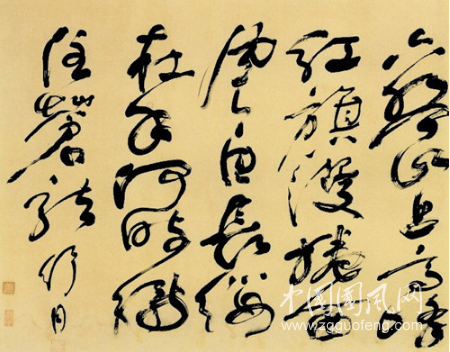 六盤山上高峰
红旗漫捲西
風今日長纓
在手何时縛
住蒼龙
中国国风网
www.zgguofeng.com